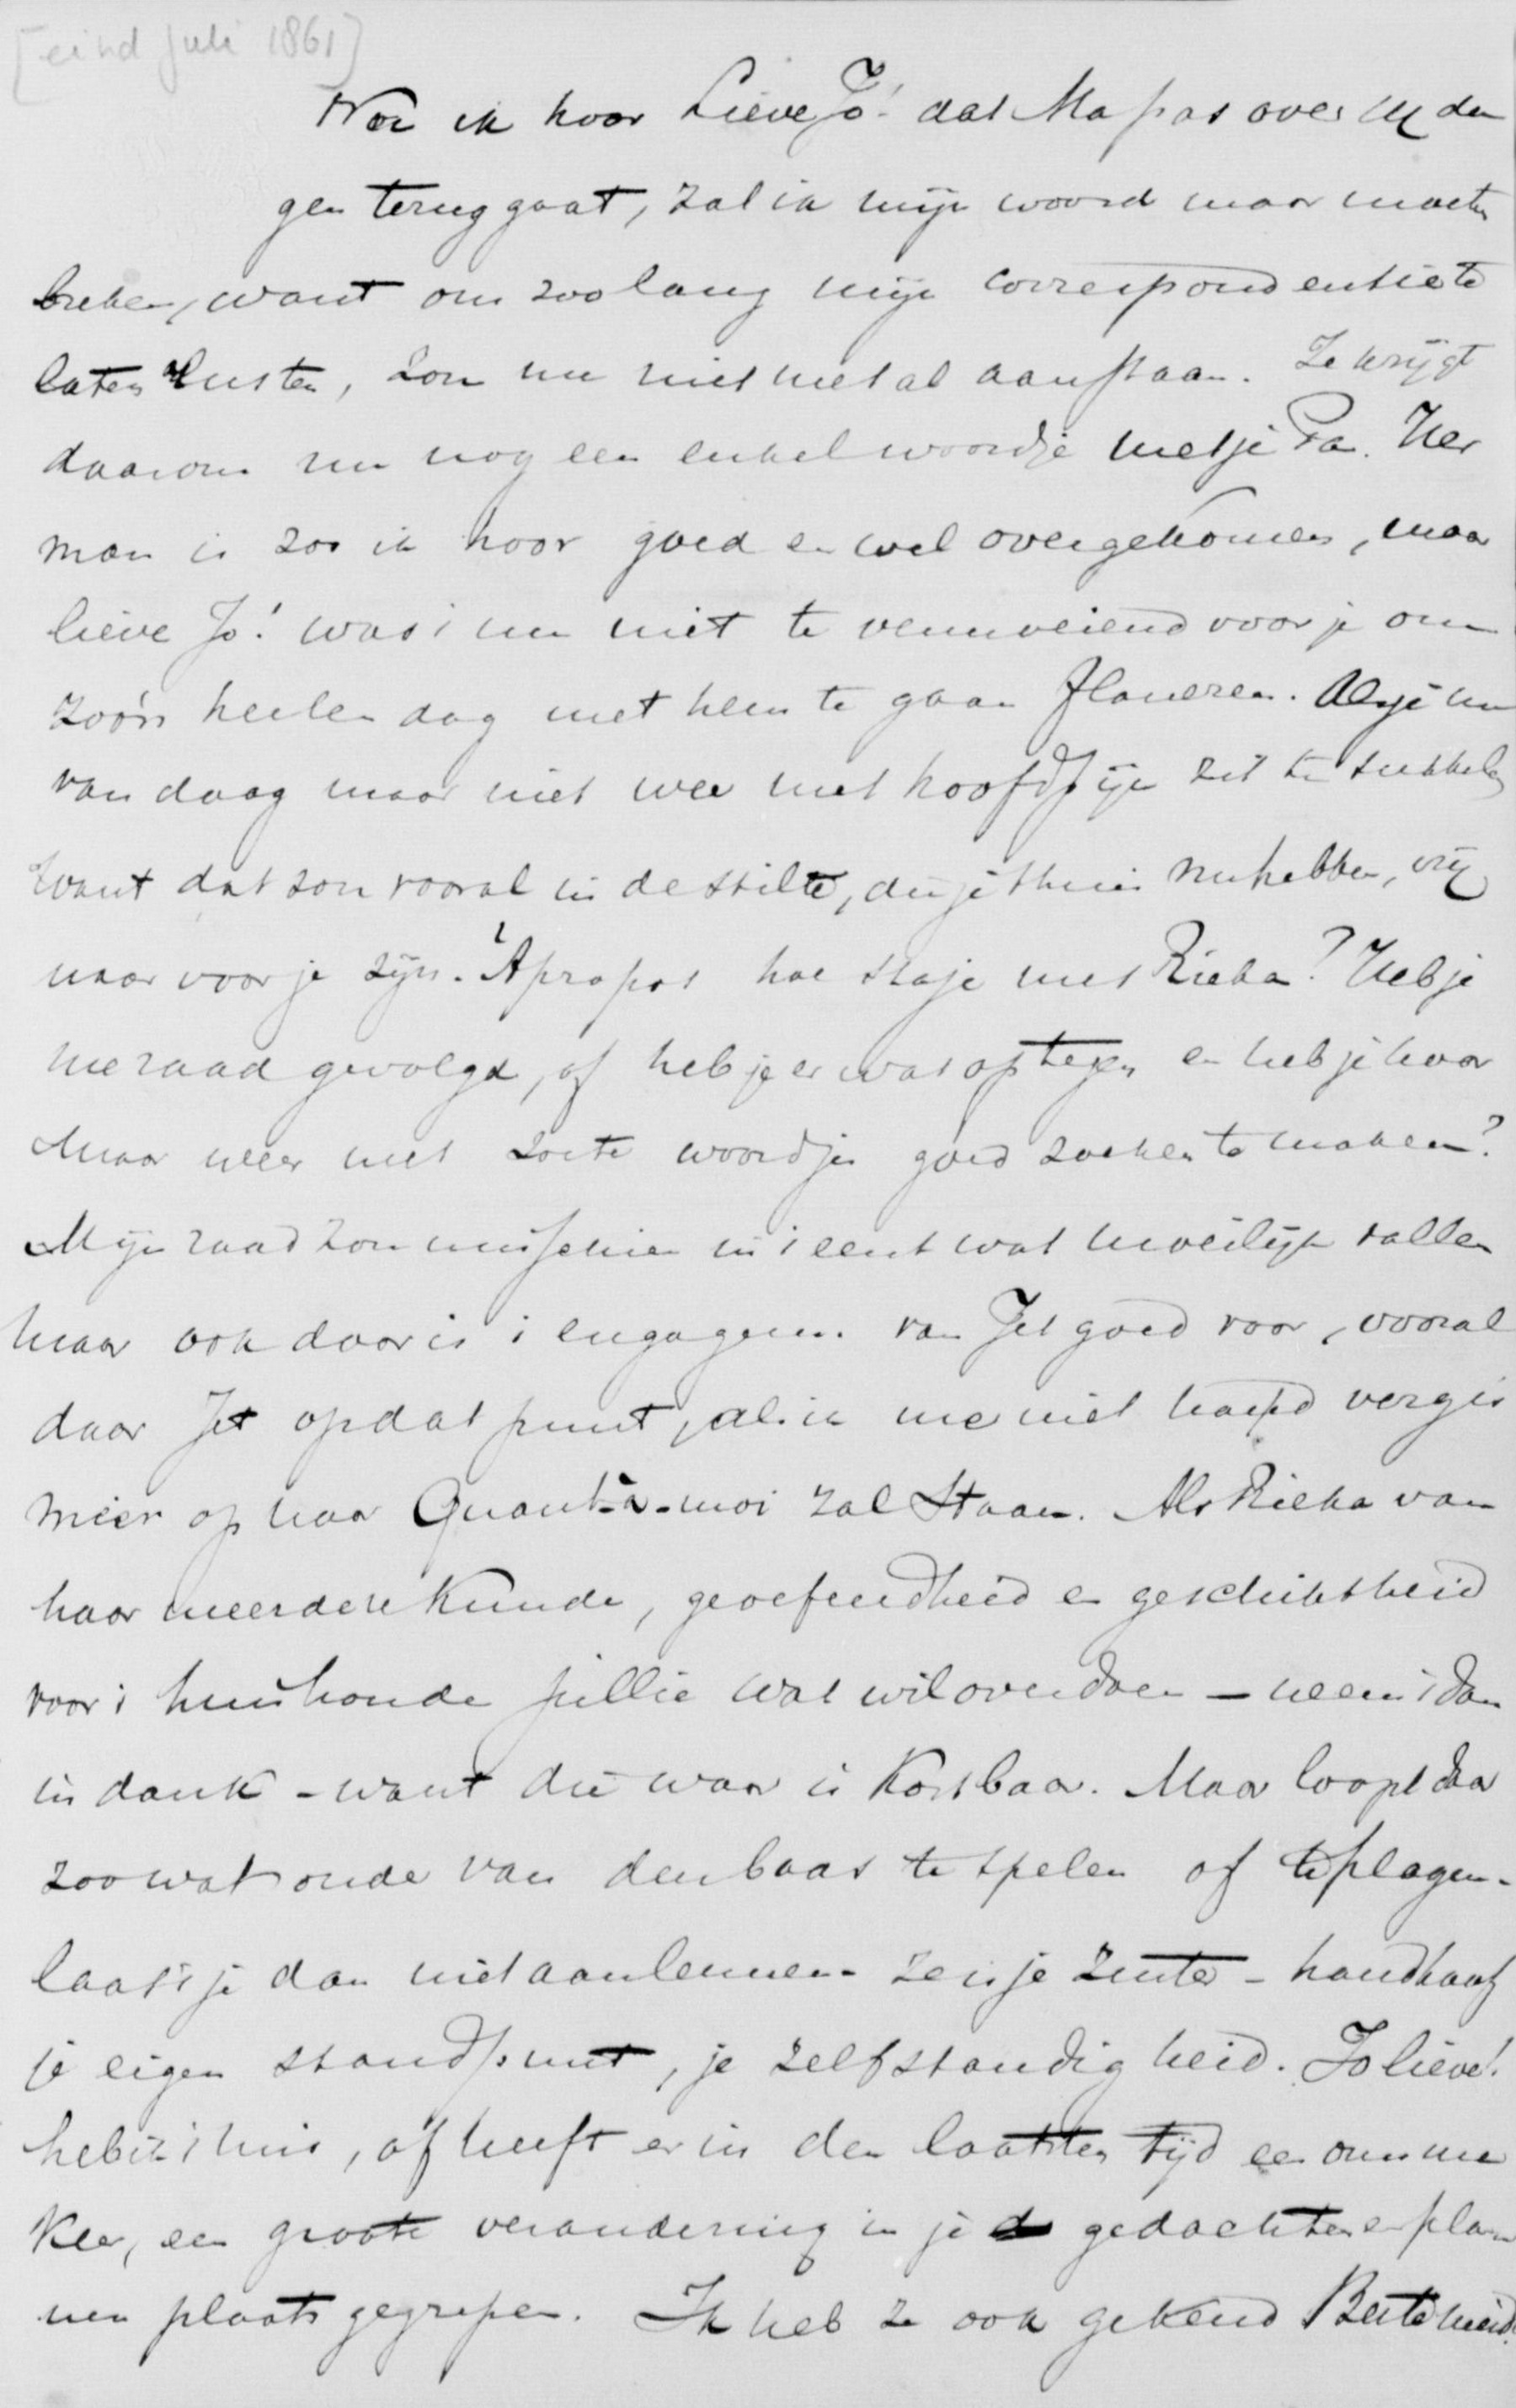 [eind Juli 1861]
Nou ik hoor Lieve Jo! dat Ma pas over da
gen terug gaat, zal ik mijn woord maar moeten
breken, want om zoolang mijn correspondentie te
laten rusten, zou me niet met al aanstaan. Je krijgt
daarom nu nog een enkel woordje met je Pa. Her
man is zoo ik hoor goed en wel overgekomen, maar
lieve Jo! was i nu niet te vermoeiend voor je om
zoo'n heelen dag met hem te gaan flaneren. Als je nu
van daag maar niet wee met hoofdpijn zit te sukkelen
want dat zou vooral in de stilte, die je thuis nu hebben, vrij
naar voor je zijn. Apropos hoe sta je met Rieka? Heb je
me raad gevolgd, of heb je er wat op tegen en heb je haar
maar weer met zoete woordjes goed zoeken te maken?
Mijn raad zou misschien in i eerst wat moeilijk vallen
maar ook daar is i engagem. van Jet goed voor, vooral
daar Jet op dat punt, als ik me niet vergis
meer op haar Quant-à-moi zal staan. Als Rieka van
haar meerdere kunde, geoefendheid en geschiktheid
voor i huishoude jullie wat wil overdoen – neem i dan
in dank – want die waar is kostbaar. Maar loopt daar
zoo wat onder van den baas te spelen of te plagen –
laat i je dan niet aanleunen – zeur je zuster – handhaaf
je eigen standpunt, je zelfstandigheid. Jo lieve!
heb ik i mis, of heeft er in den laatsten tijd een omme
keer, een groote verandering in je gedachten en plan
nen plaats gegrepen. Ik heb ze ook gekend Beste meid!